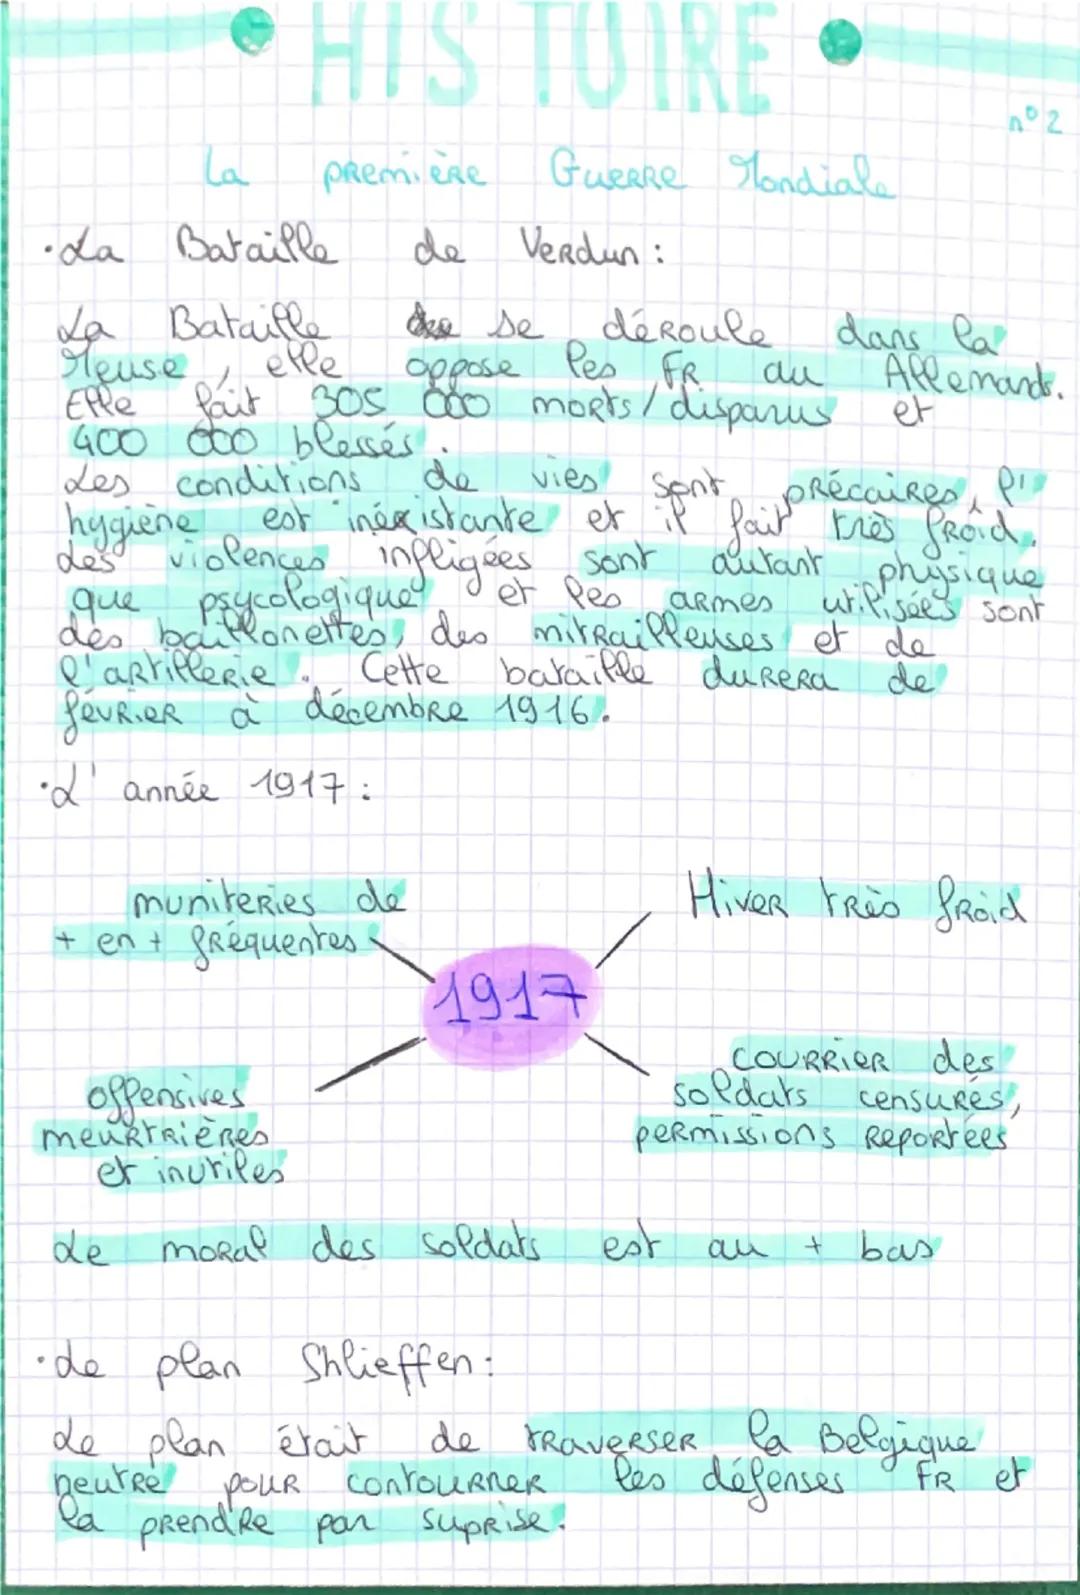 HISTOIRE
n° 2
La première Guerre Mondiale
·La Bataille de Verdun :
La Bataille se déroule dans la
Meuse, elle oppose les FR au Allemands.
Elle fait 305 000 morts/disparus et
400 000 blessés.
Les conditions de vies sont précaires, l'
hygiène est inéxistante et il fait très froid.
Les violences infligées sont autant physique
que psycologique et les armes utilisées sont
des baillonettes, des mitrailleuses et de
l'artillerie. Cette bataille durera de
février à décembre 1916.
·L'année 1917 :
muniteries de
+ en + fréquentes
Hiver très froid
1917
offensives
meurtrières
et inutiles
courrier des
soldats censurés,
permissions reportées
Le moral des soldats est au + bas
·Le plan Shlieffen :
Le plan était de traverser la Belgique
neutre pour contourner les défenses FR et
la prendre par suprise.